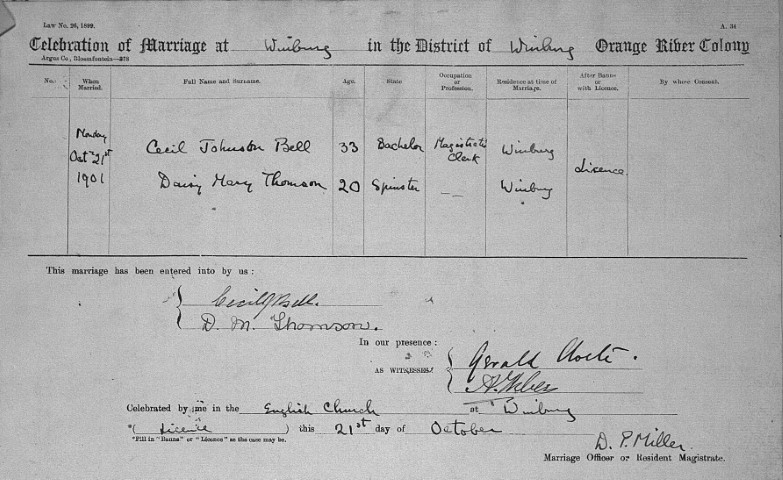 Law No. 26, 1899.
A. 34
Celebration of Marriage at Winburg in the District of Winburg Orange River Colony
Argus Co., Bloemfontein—378
No. When Married. Full Name and Surname. Age. State Occupation or Profession. Residence at time of Marriage. After Banns or with Licence. By whose Consent.
Monday Oct 21st 1901
Cecil Johnston Bell 33 Bachelor Magistrate's Clerk Winburg
Licence
Daisy Mary Thomson 20 Spinster — Winburg
This marriage has been entered into by us :
Cecil J Bell.
D. M. Thomson.
In our presence :
AS WITNESSES
Gerald Cloete.
Celebrated by me in the English Church at Winburg
*( Licence ) this 21st day of October
*Fill in "Banns" or "Licence" as the case may be.
D. P. Miller
Marriage Officer or Resident Magistrate.